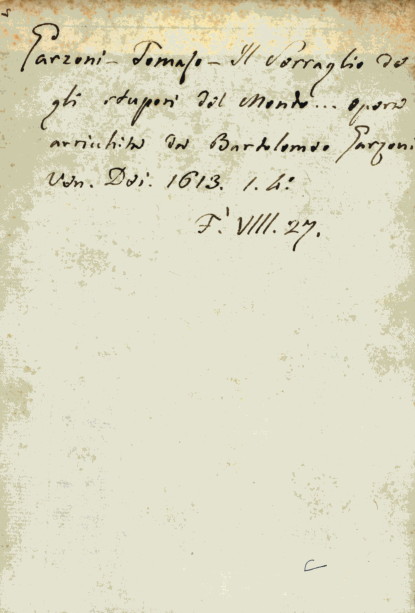 Garzoni - Tomaso - Il Serraglio de
gli stupori del Mondo... opera
arricchita da Bartolomeo Garzoni
Ven. Dei. 1613. 1. 4º
F. VIII. 27.